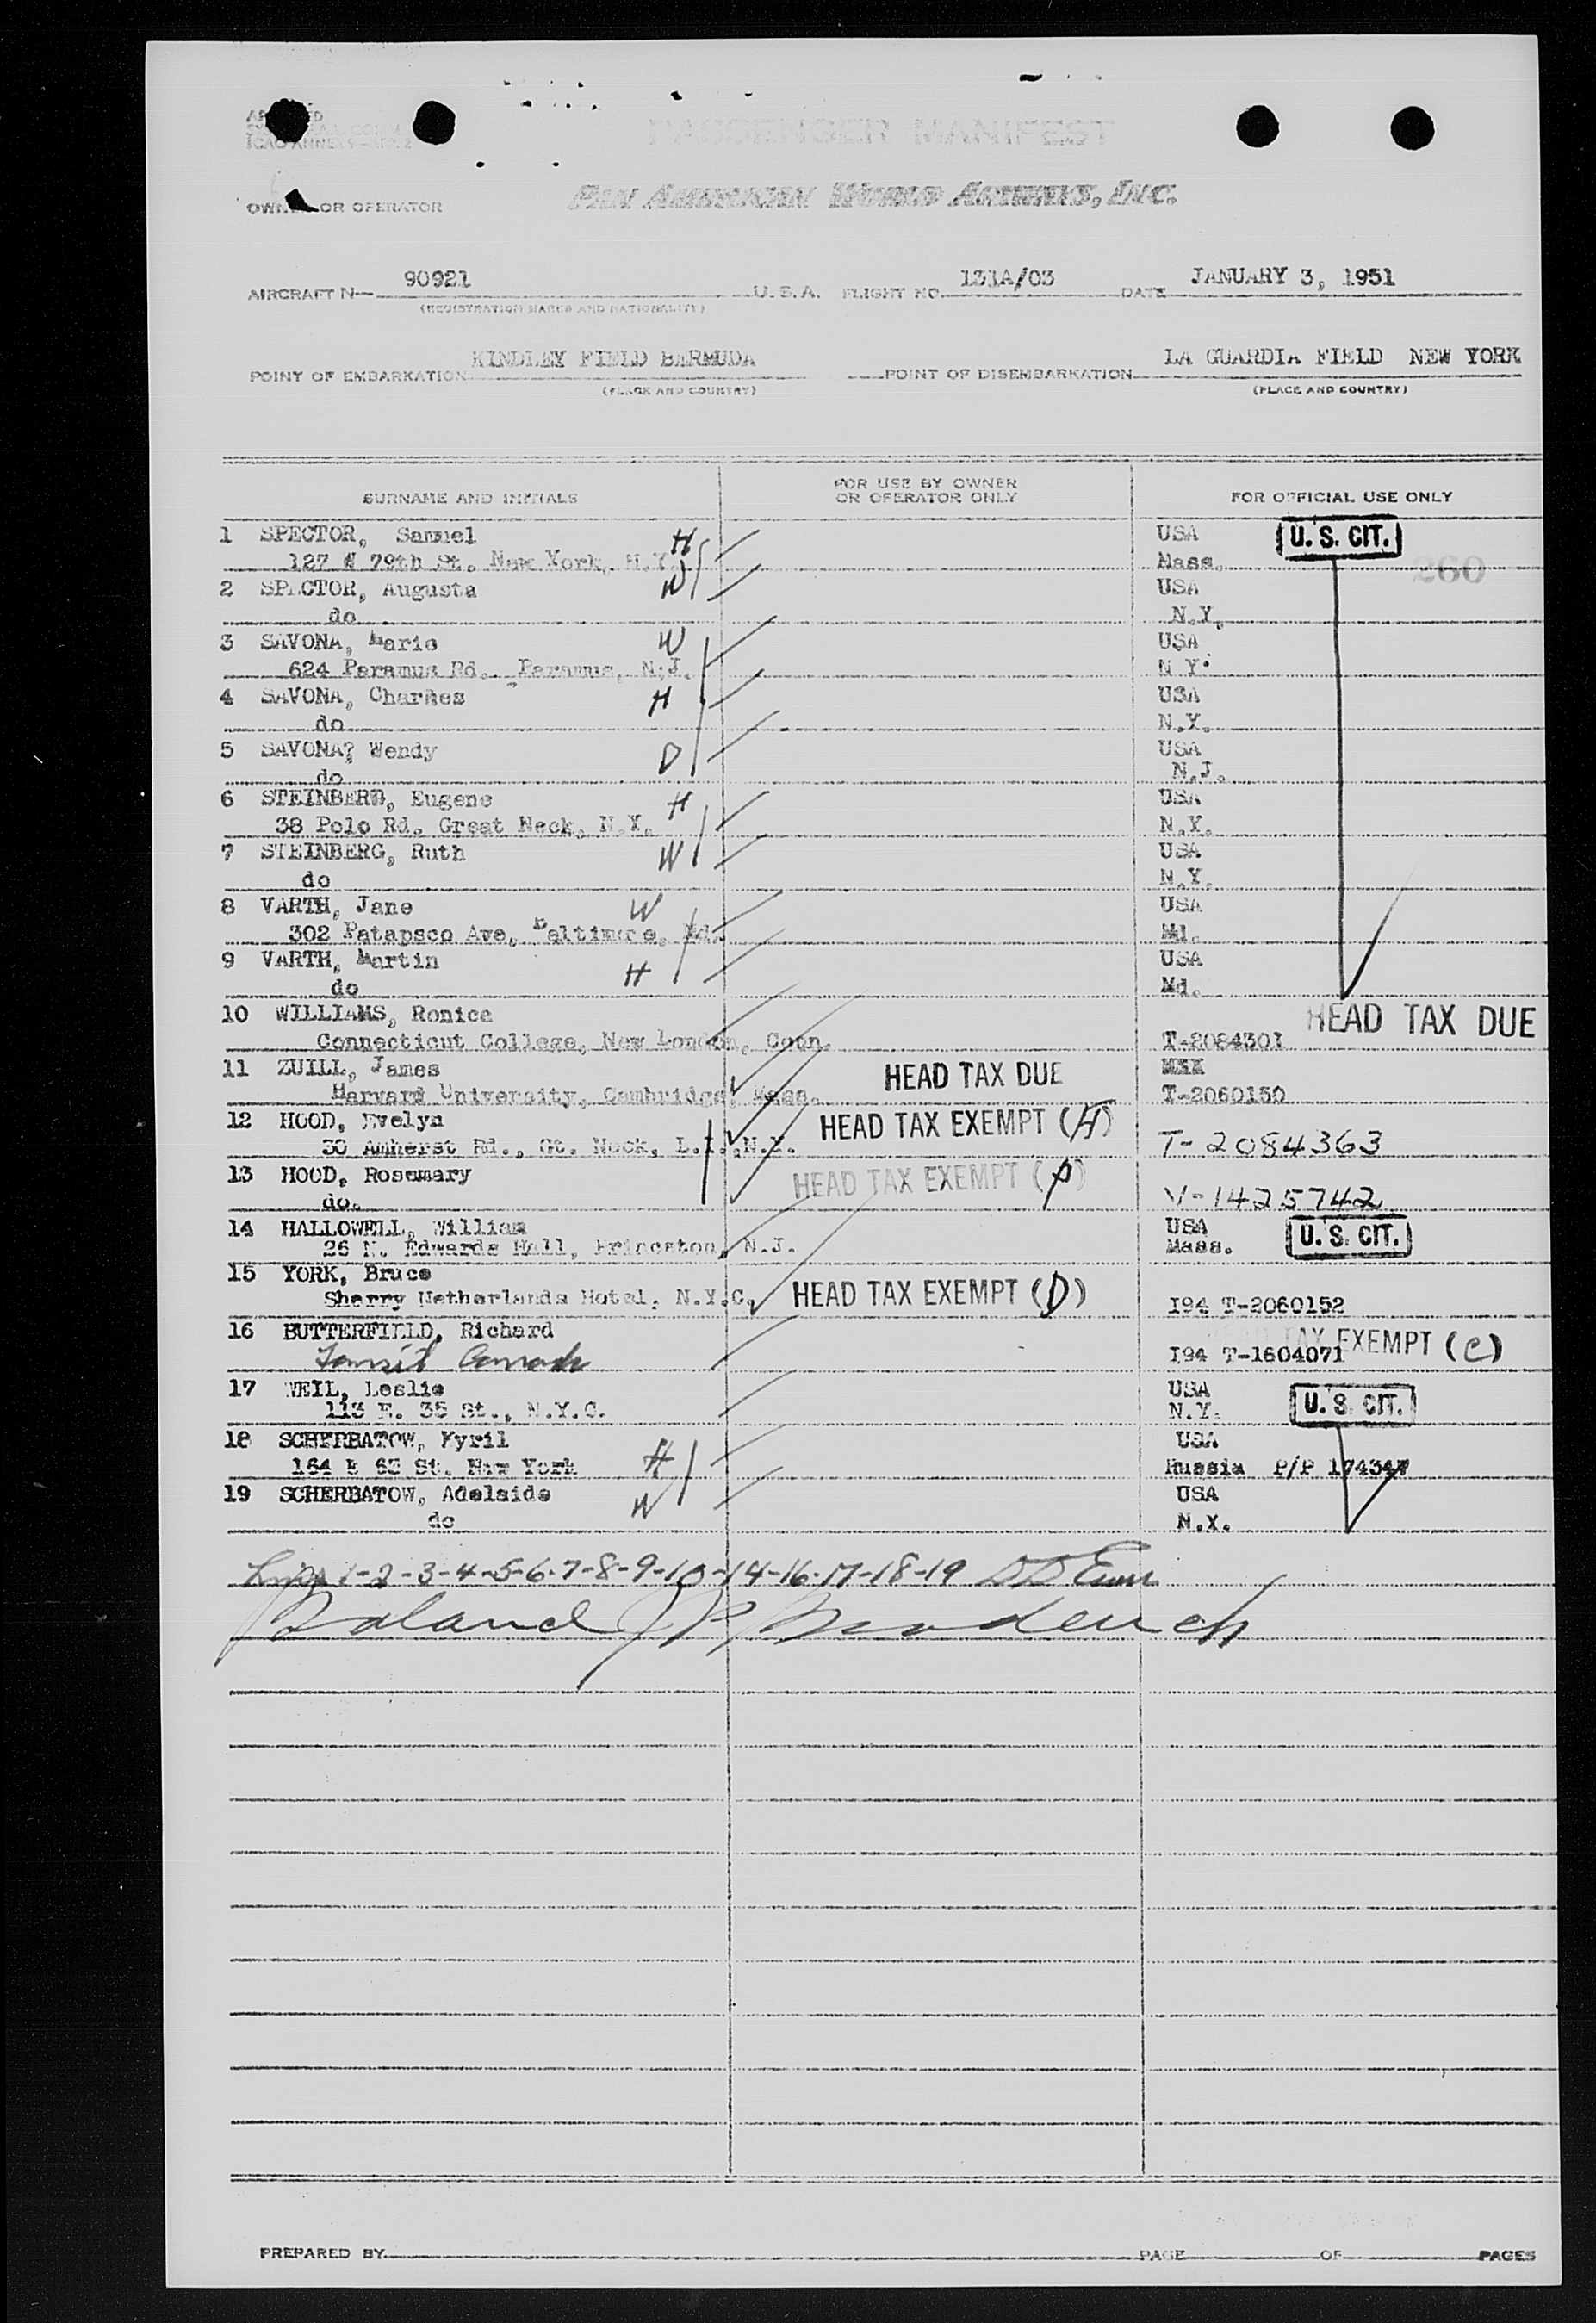 PASSENGER MANIFEST
OWNER OR OPERATOR
PAN AMERICAN WORLD AIRWAYS, INC.
AIRCRAFT N— 90921 U.S.A. FLIGHT NO. 131A/03 DATE JANUARY 3, 1951
(REGISTRATION MARKS AND NATIONALITY)
POINT OF EMBARKATION KINDLEY FIELD BERMUDA POINT OF DISEMBARKATION LA GUARDIA FIELD NEW YORK
(PLACE AND COUNTRY) (PLACE AND COUNTRY)
SURNAME AND INITIALS FOR USE BY OWNER OR OPERATOR ONLY FOR OFFICIAL USE ONLY
1 SPECTOR, Samuel H USA U.S. CIT.
127 W 79th St. New York, N.Y. Mass. 260
2 SPECTOR, Augusta W USA
do N.Y.
3 SAVONA, Marie W USA
624 Paramus Rd. Paramus, N.J. N Y.
4 SAVONA, Charles H USA
do N.Y.
5 SAVONA? Wendy D USA
do N.J.
6 STEINBERG, Eugene H USA
38 Polo Rd. Great Neck, N.Y. N.Y.
7 STEINBERG, Ruth W USA
do N.Y.
8 VARTH, Jane W USA
302 Patapsco Ave, Baltimore, Md. Md.
9 VARTH, Martin H USA
do Md.
10 WILLIAMS, Ronica HEAD TAX DUE
Connecticut College, New London, Conn. T-2084301
11 ZUILL, James HEAD TAX DUE
Harvard University, Cambridge, Mass. T-2060150
12 HOOD, Evelyn HEAD TAX EXEMPT (H)
30 Amherst Rd., Gt. Neck, L.I., N.Y. T-2084363
13 HOOD, Rosemary HEAD TAX EXEMPT
do. V-1425742
14 HALLOWELL, William USA U.S. CIT.
26 N. Edwards Hall, Princeton, N.J. Mass.
15 YORK, Bruce HEAD TAX EXEMPT (D)
Sherry Netherlands Hotel, N.Y.C. I94 T-2060152
16 BUTTERFIELD, Richard HEAD TAX EXEMPT (C)
Transit Canada I94 T-1604071
17 WEIL, Leslie USA U.S. CIT.
113 E. 35 St., N.Y.C. N.Y.
18 SCHERBATOW, Kyril H USA
164 E 63 St. New York Russia P/P 174347
19 SCHERBATOW, Adelaide W USA
do N.Y.
1-2-3-4-5-6-7-8-9-10-14-16-17-18-19
Roland J P
PREPARED BY PAGE OF PAGES